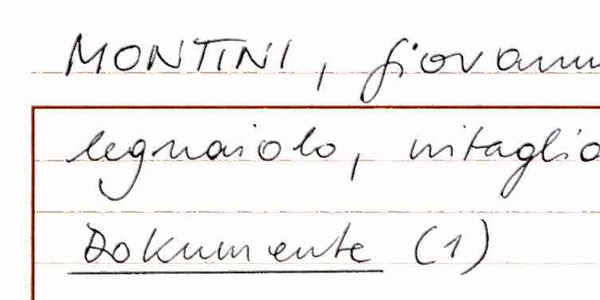 MONTINI, Giovann
legnaiolo, intaglio
Dokumente (1)